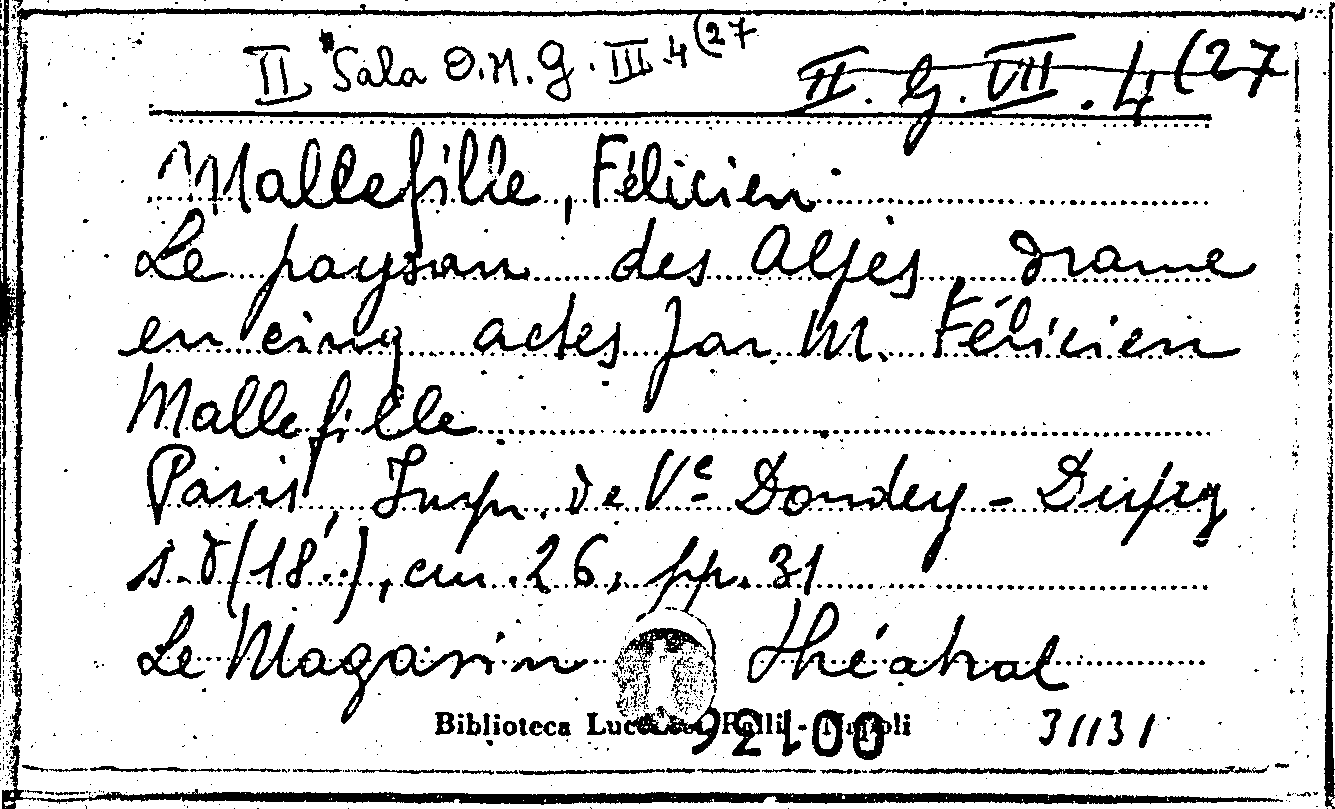 II Sala O.M.G. III.4(27 II. G. VII. 4(27
Mallefille, Félicien
Le paysan des Alpes, drame
en cinq actes par M. Félicien
Mallefille
Paris, Imp. de Ve Dondey-Dupry
s.d(18..), cm. 26, pp. 31
Le Magasin théatral
Biblioteca Napoli